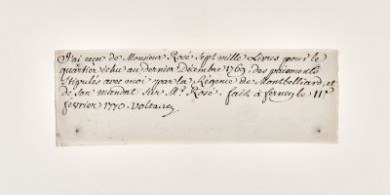 J'ai reçu de Monsieur Rosé Sept mille Livres pour le
quartier échu au dernier Décembre 1769, des paiements
stipulés avec moi par la Régence de Montbelliard, et
de son intendant sur Mr. Rosé. fait à ferney le 11e
février 1770. Voltaire